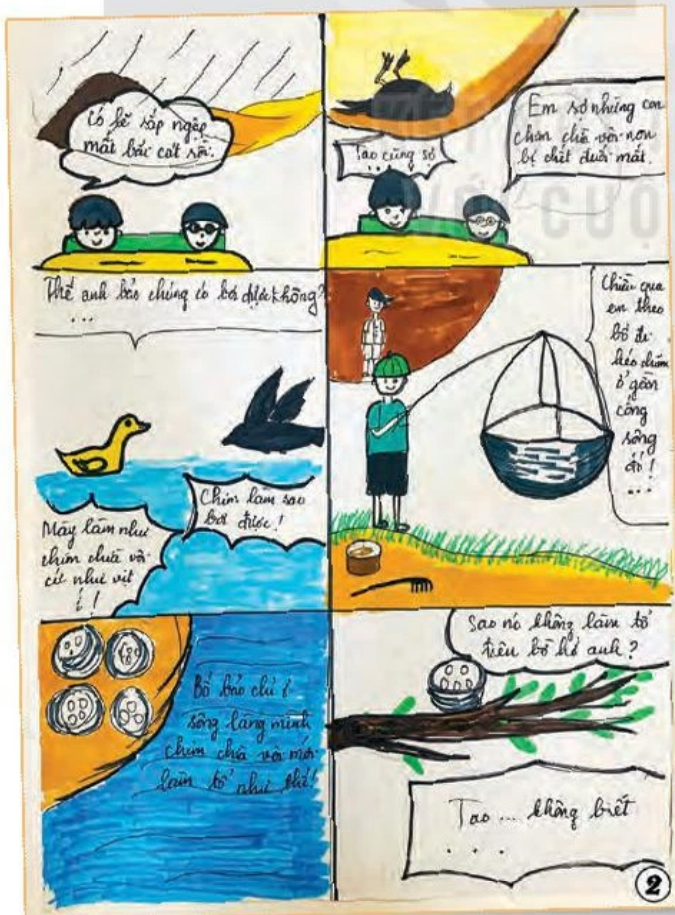 Có lẽ sắp ngập
mất bãi cát rồi.
Em sợ những con
chim chìa vôi non
bị chết đuối mất.
Tao cũng sợ
...
Thế anh bảo chúng có bơi được không?
...
Chim làm sao
bơi được!
Mày làm như
chim chìa vôi
cứ như vịt
í!
Chiều qua
em theo
bố đi
kéo chũm
ở gần
cống
sông
đó!
...
Bố bảo chỉ ở
sông làng mình
chim chìa vôi mới
làm tổ như thế!
Sao nó không làm tổ
trên bờ hả anh?
Tao... không biết
...
2